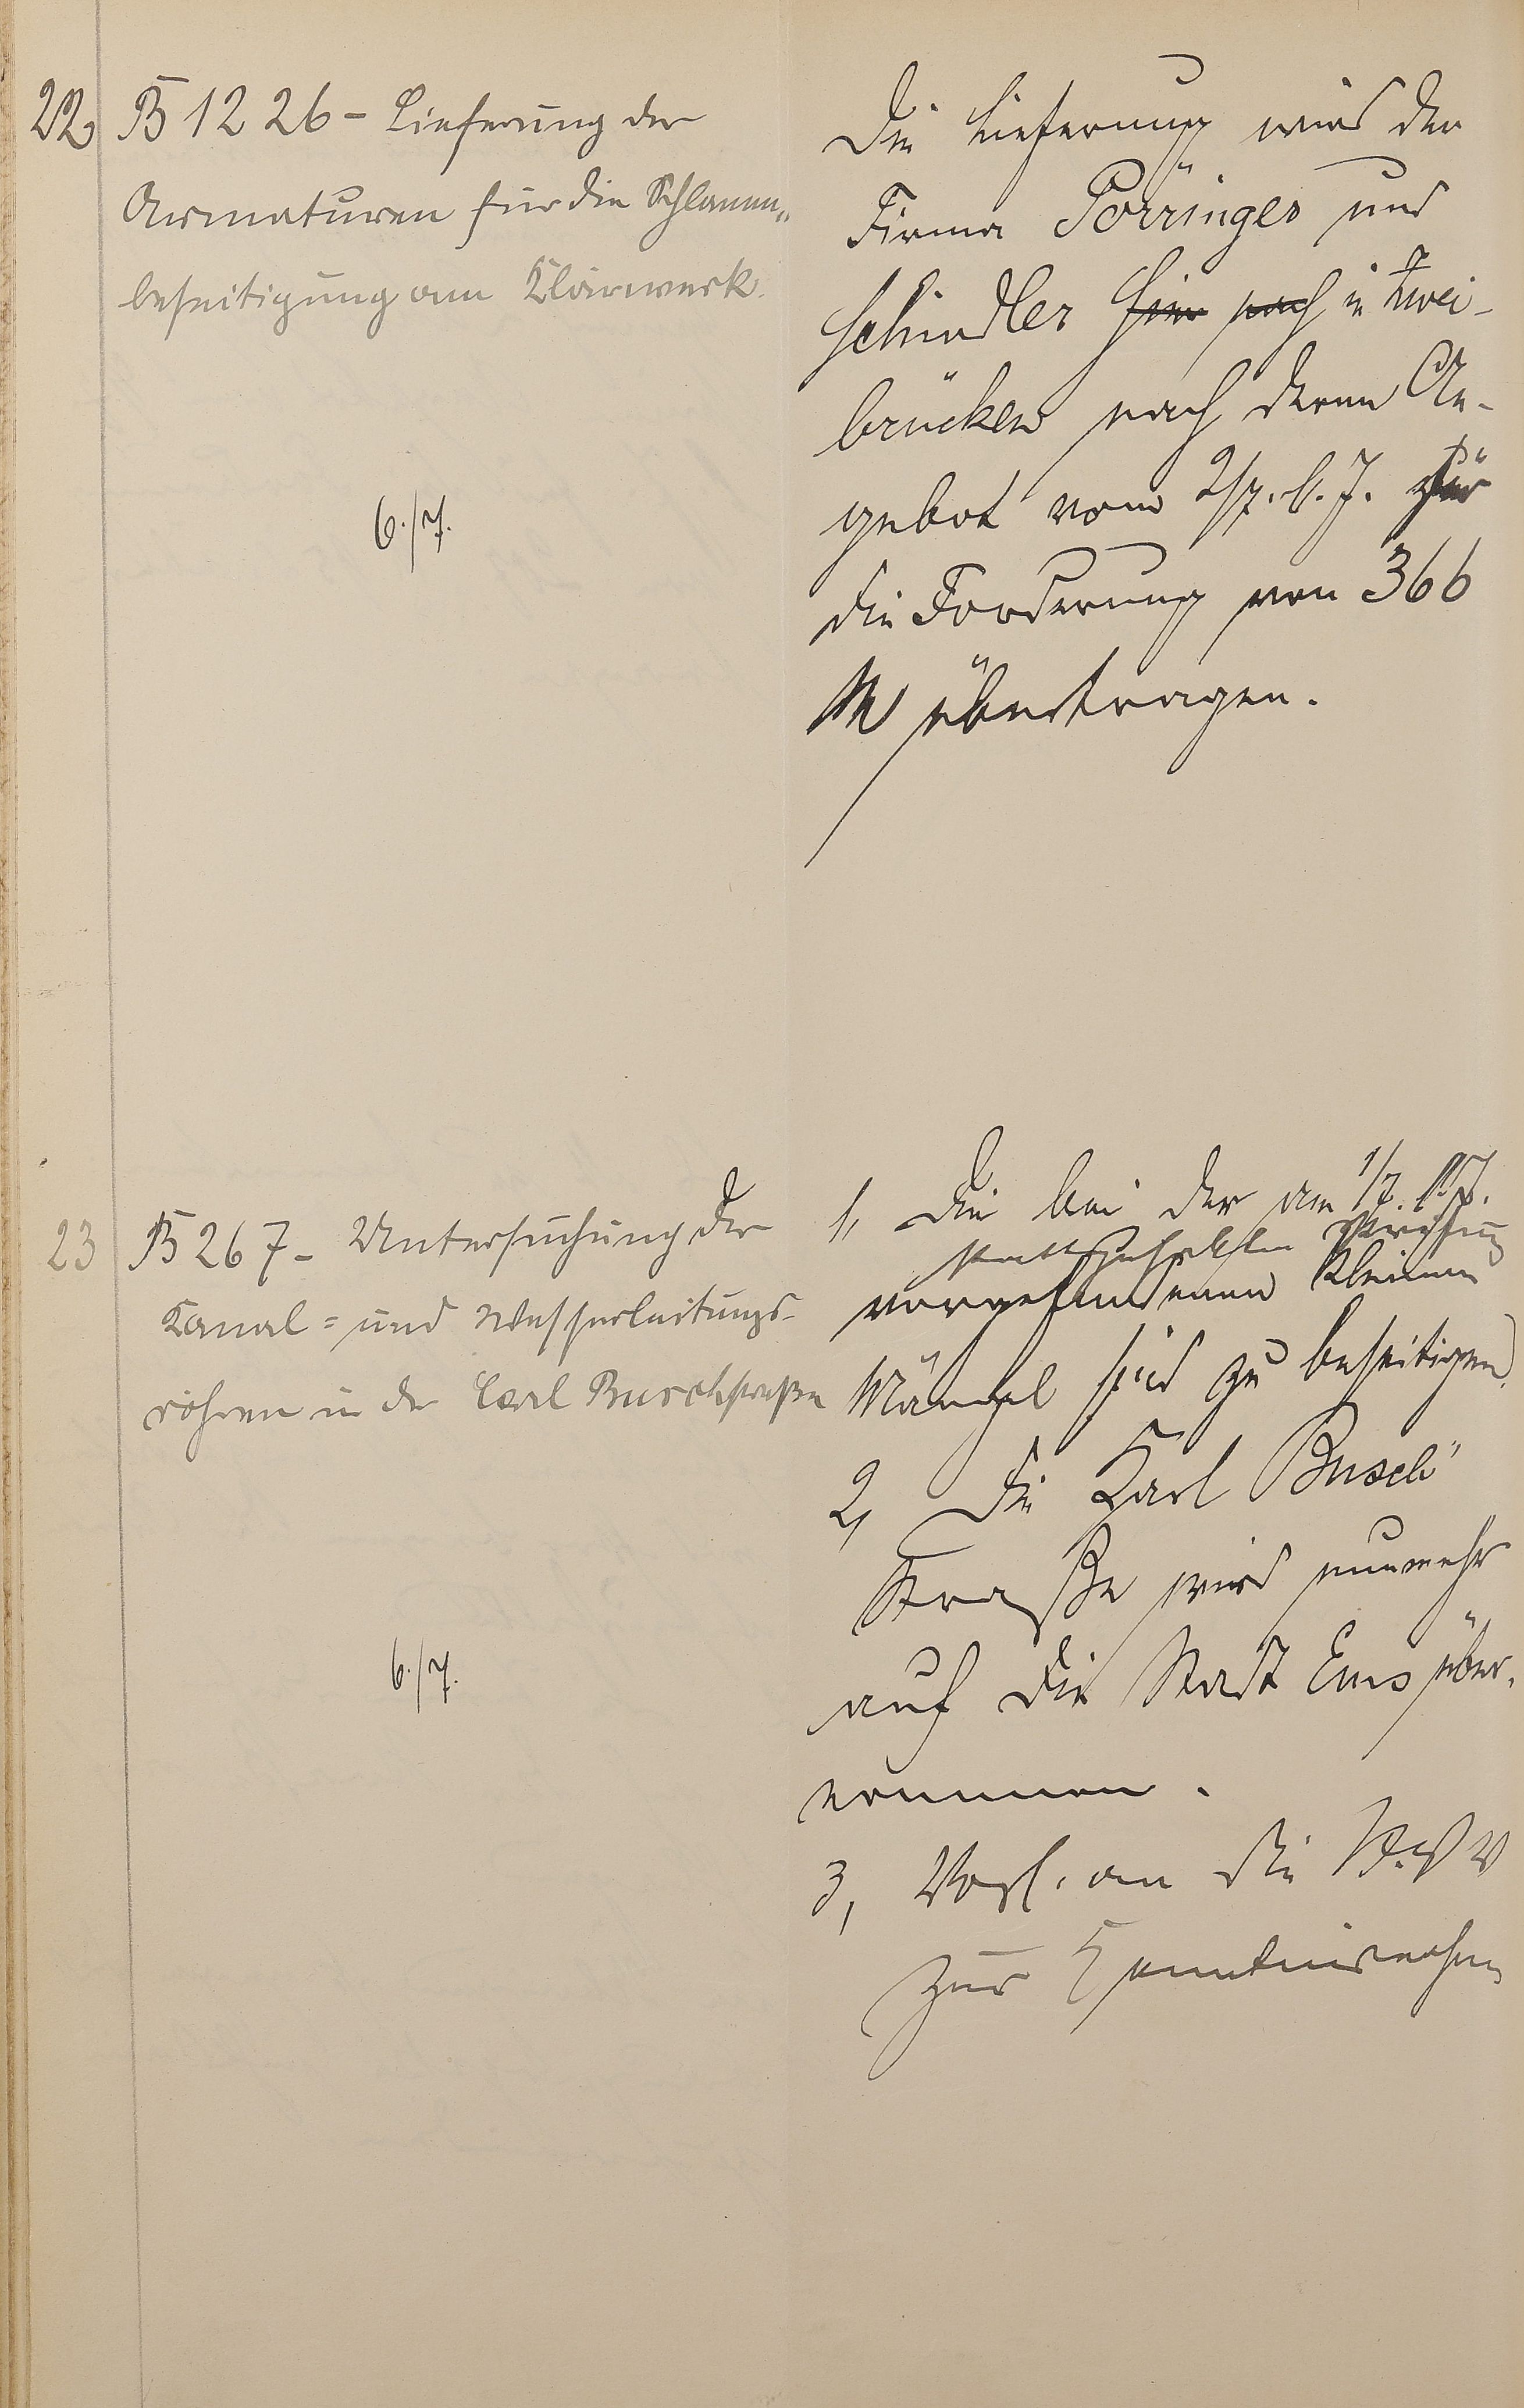 22
B 1226 - Lieferung der
Armaturen für die Schlamm„
beseitigung am Klärwerk.
6./7.
Die Lieferung wird der
Firma Pörringer und
Schindler hier nach in Zwei-
brücken nach deren An-
gebot vom 2/7. l. J. für
die Forderung von 366
M übertragen.
23
B 267 - Untersuchung der
Kanal= und Wasserleitungs-
röhren in der Carl Buschstraße
6./7.
1, Die bei der am 1/7. l. J.
stattgehabten Prüfung
vorgefundenen kleinen
Mängel sind zu beseitigen.
2, Die Karl Busch"
Straße wird nunmehr
auf die Stadt Ems über-
nommen.
3, Vorl. an die St. V V
zur Kenntnisnahme